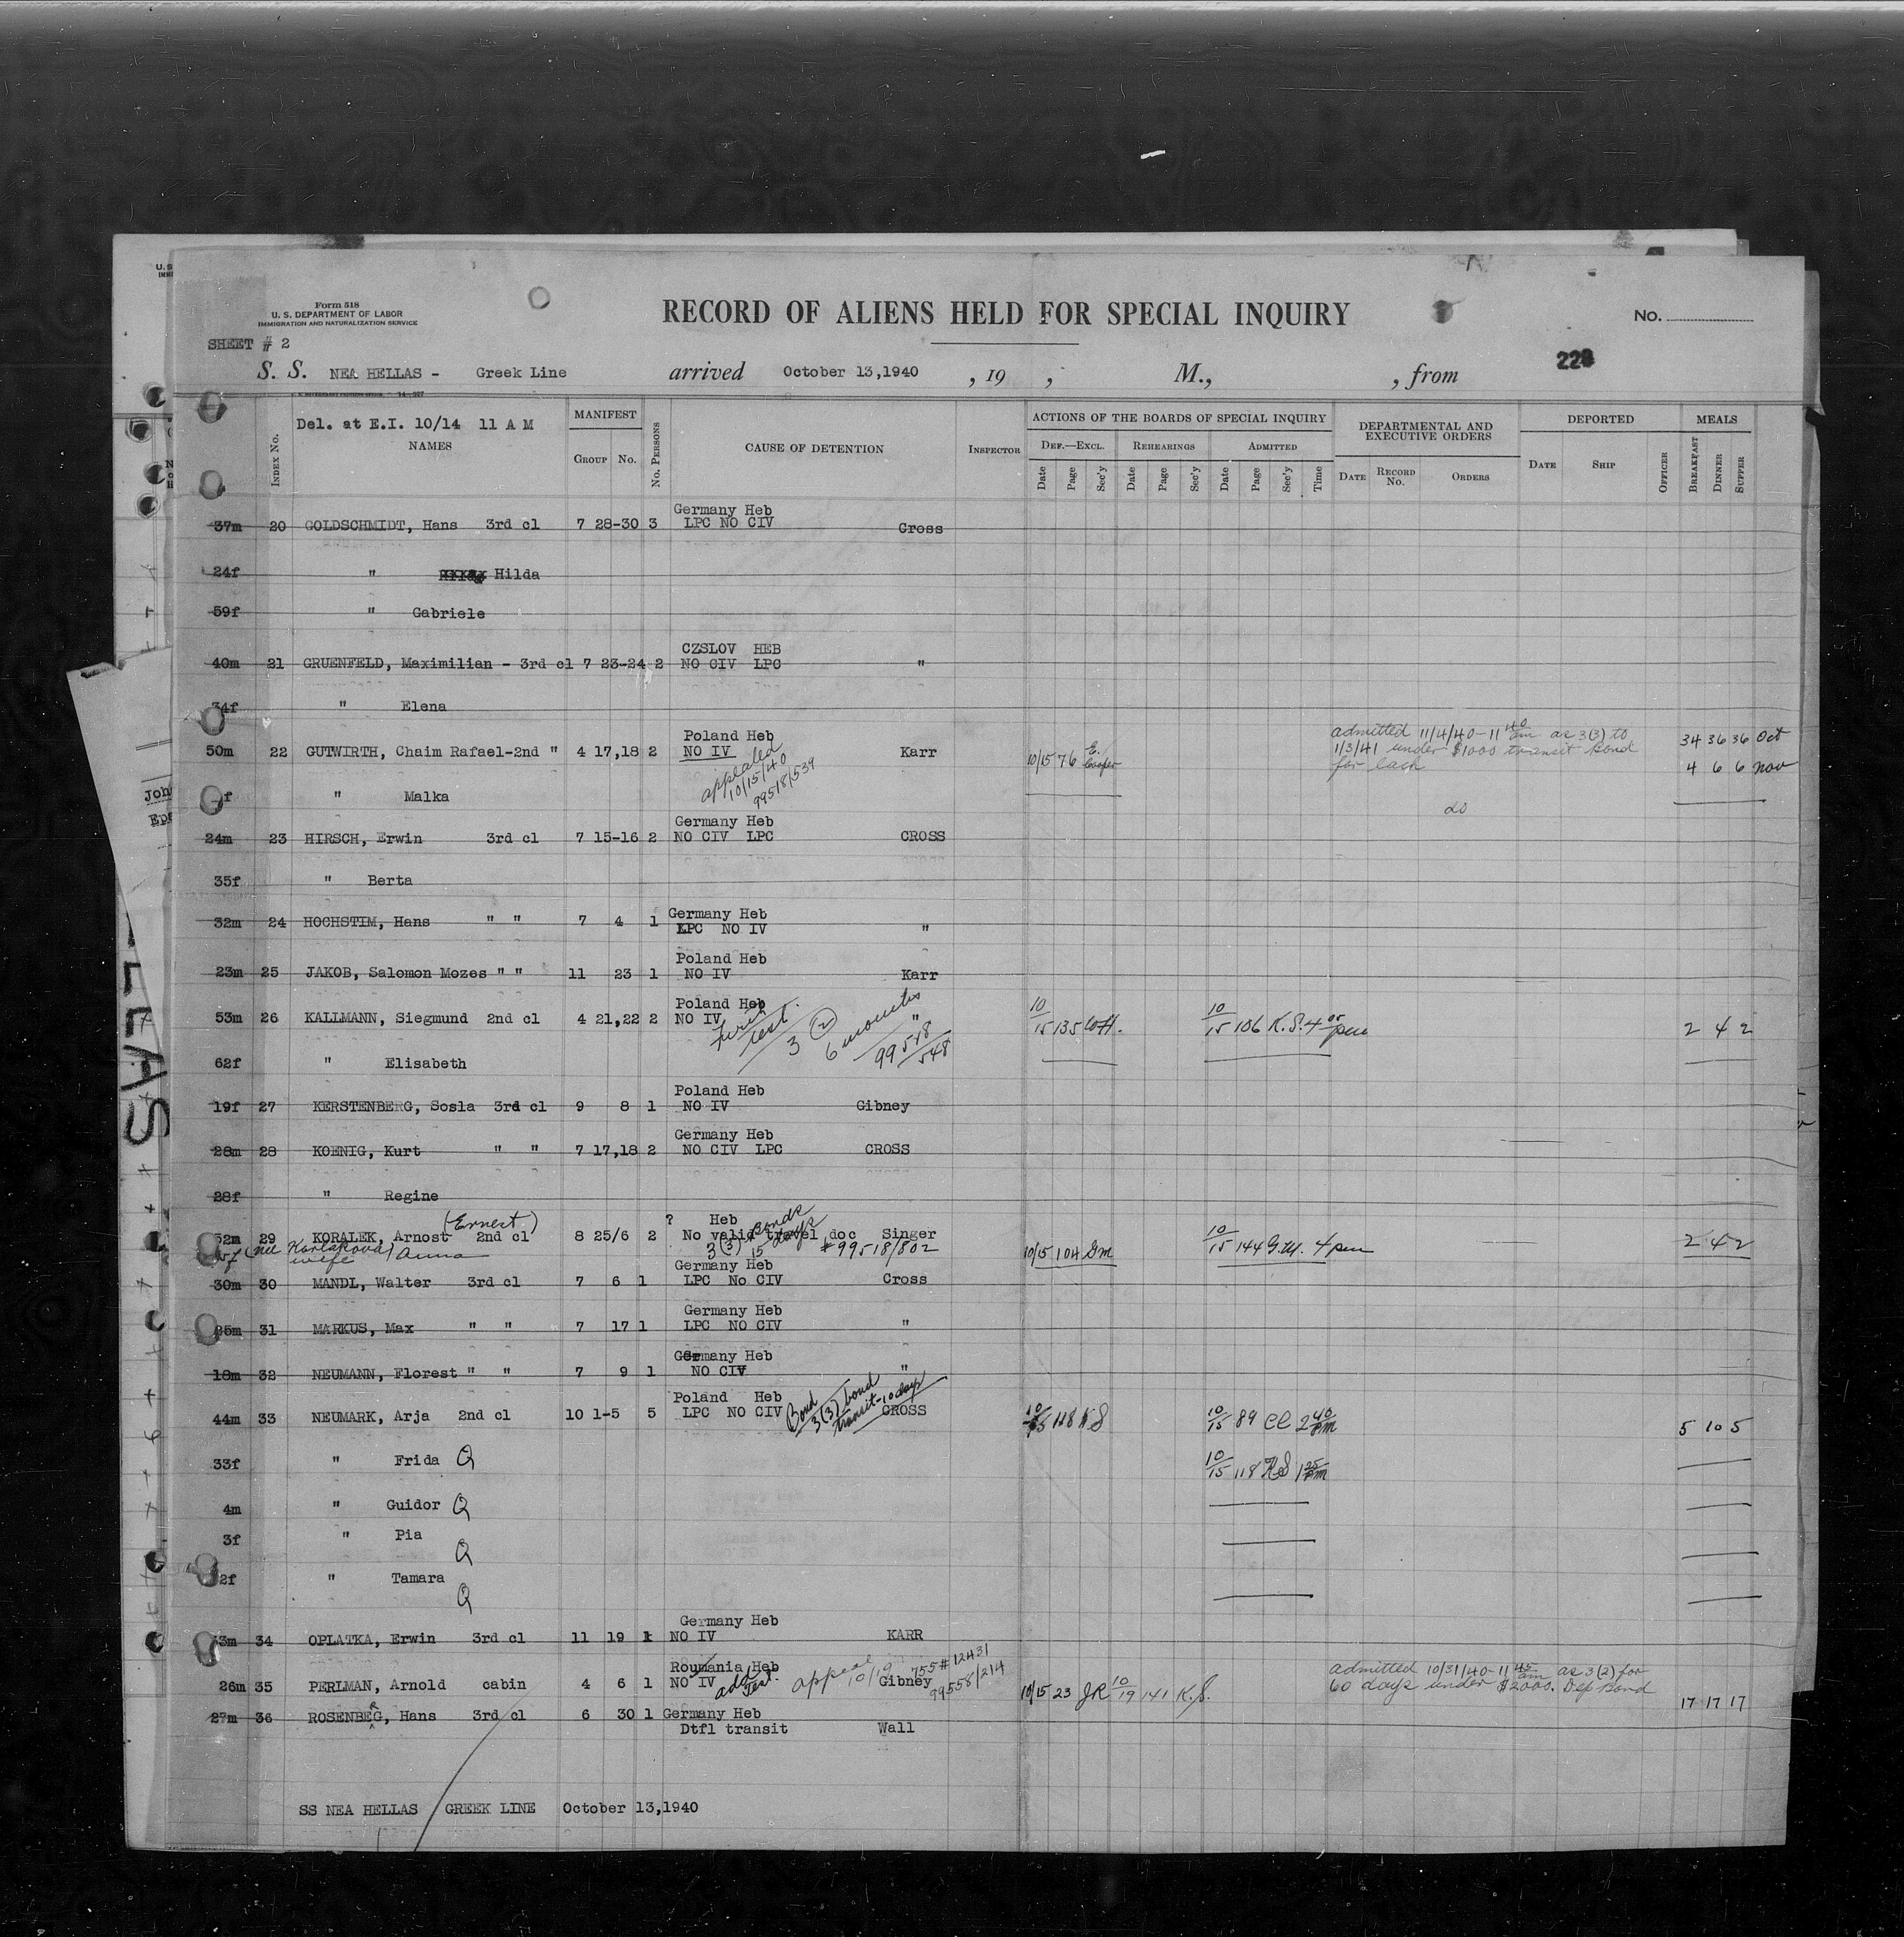 Form 518
U. S. DEPARTMENT OF LABOR
IMMIGRATION AND NATURALIZATION SERVICE
RECORD OF ALIENS HELD FOR SPECIAL INQUIRY
No.
SHEET # 2
S. S. NEA HELLAS - Greek Line arrived October 13,1940 , 19 , M., , from
Del. at E.I. 10/14 11 A M
INDEX No. NAMES MANIFEST GROUP No. No. PERSONS CAUSE OF DETENTION INSPECTOR
ACTIONS OF THE BOARDS OF SPECIAL INQUIRY
DEF.—EXCL. REHEARINGS ADMITTED
Date Page Sec'y Date Page Sec'y Date Page Sec'y Time
DEPARTMENTAL AND EXECUTIVE ORDERS
DATE RECORD No. ORDERS
DEPORTED
DATE SHIP OFFICER
MEALS
BREAKFAST DINNER SUPPER
Germany Heb
37m 20 GOLDSCHMIDT, Hans 3rd cl 7 28-30 3 LPC NO CIV Cross
24f " Hilda
59f " Gabriele
CZSLOV HEB
40m 21 GRUENFELD, Maximilian - 3rd cl 7 23-24 2 NO CIV LPC "
34f " Elena
Poland Heb
50m 22 GUTWIRTH, Chaim Rafael-2nd " 4 17,18 2 NO IV Karr 10/15 76 E. Cooper
appealed
10/15/40
99518/539
admitted 11/4/40-11 40 am as 3(3) to
1/3/41 under $1000 transit Bond
for each
34 36 36 Oct
4 6 6 nov
f " Malka do
Germany Heb
24m 23 HIRSCH, Erwin 3rd cl 7 15-16 2 NO CIV LPC CROSS
35f " Berta
Germany Heb
32m 24 HOCHSTIM, Hans " " 7 4 1 LPC NO IV "
Poland Heb
23m 25 JAKOB, Salomon Mozes " " 11 23 1 NO IV Karr
Poland Heb
53m 26 KALLMANN, Siegmund 2nd cl 4 21,22 2 NO IV " 10/15 135 10/15 106 K.S. 4 05 pm 2 4 2
3 (2)
6 months
99518/548
62f " Elisabeth
Poland Heb
19f 27 KERSTENBERG, Sosla 3rd cl 9 8 1 NO IV Gibney
Germany Heb
28m 28 KOENIG, Kurt " " 7 17,18 2 NO CIV LPC CROSS
28f " Regine
(Ernest) ? Heb
52m 29 KORALEK, Arnost 2nd cl 8 25/6 2 No valid travel doc Singer 10/15 104 Gm 10/15 144 G.M. 4 pm 2 4 2
3 (3) Bonds 15 days #99518/802
(nee Korlakova) Anna
wife
Germany Heb
30m 30 MANDL, Walter 3rd cl 7 6 1 LPC No CIV Cross
Germany Heb
25m 31 MARKUS, Max " " 7 17 1 LPC NO CIV "
Germany Heb
18m 32 NEUMANN, Florest " " 7 9 1 NO CIV "
Poland Heb
44m 33 NEUMARK, Arja 2nd cl 10 1-5 5 LPC NO CIV CROSS 10/15 118 KS 10/15 89 Cl 2 40 pm 5 10 5
Bond
3(3) bond
transit-10 days
33f " Frida Q 10/15 118 KS 1 25 pm
4m " Guidor Q
3f " Pia Q
2f " Tamara Q
Germany Heb
33m 34 OPLATKA, Erwin 3rd cl 11 19 1 NO IV KARR
Roumania Heb
26m 35 PERLMAN, Arnold cabin 4 6 1 NO IV Gibney 10/15 23 JR 10/19 141 K.S.
add Test.
appeal
10/19
755 #12431
99558/214
admitted 10/31/40-11 45 am as 3(2) for
60 days under $2000. Dep Bond
17 17 17
27m 36 ROSENBEG, Hans 3rd cl 6 30 1 Germany Heb
R
Dtfl transit Wall
SS NEA HELLAS GREEK LINE October 13,1940